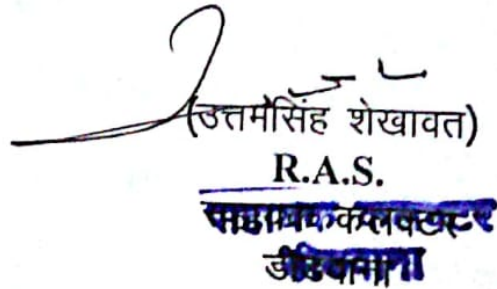 (उत्तमसिंह शेखावत)
R.A.S.
सहायक कलक्टर
डीडवाना